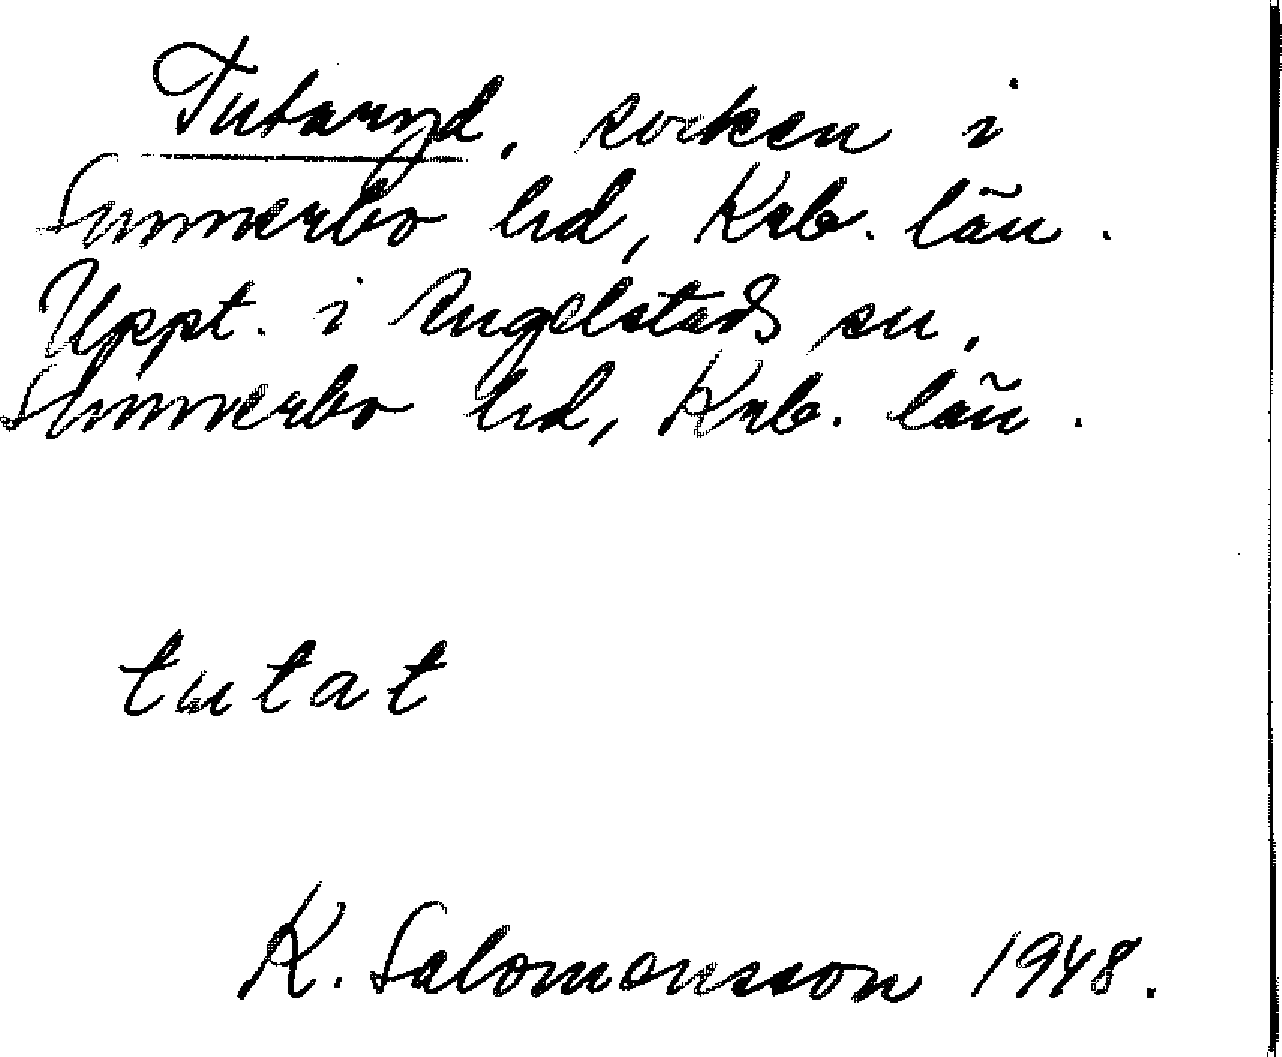 Tutaryd, socken i
Sunnerbo hd, Krb. län.
Uppt. i Angelstads sn,
Sunnerbo hd, Krb. län.
tutat
K. Salomonsson 1948.